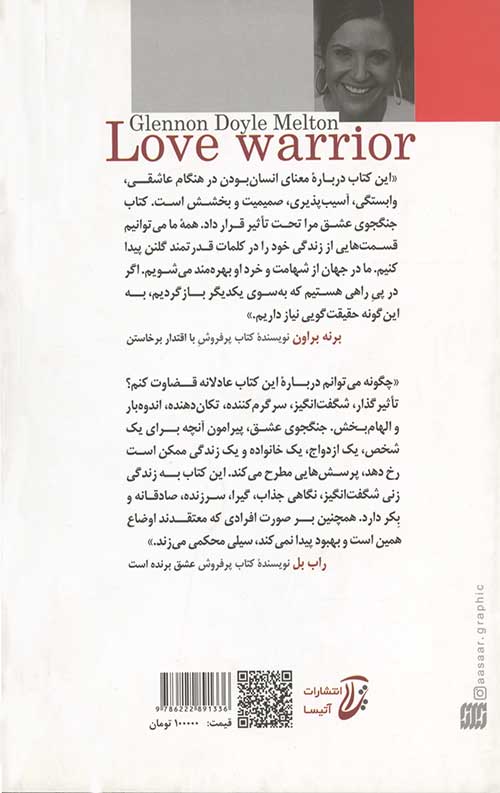 Glennon Doyle Melton
Love warrior
«این کتاب دربارهٔ معنای انسان‌بودن در هنگام عاشقی،
وابستگی، آسیب‌پذیری، صمیمیت و بخشش است. کتاب
جنگجوی عشق مرا تحت تأثیر قرار داد. همهٔ ما می‌توانیم
قسمت‌هایی از زندگی خود را در کلمات قدرتمند گلنن پیدا
کنیم. ما در جهان از شهامت و خرد او بهره‌مند می‌شویم. اگر
در پیِ راهی هستیم که به‌سوی یکدیگر بازگردیم، به
این‌گونه حقیقت‌گویی نیاز داریم.»
برنه براون نویسندهٔ کتاب پرفروشِ با اقتدار برخاستن
«چگونه می‌توانم دربارهٔ این کتاب عادلانه قضاوت کنم؟
تأثیرگذار، شگفت‌انگیز، سرگرم‌کننده، تکان‌دهنده، اندوه‌بار
و الهام‌بخش. جنگجوی عشق، پیرامون آنچه برای یک
شخص، یک ازدواج، یک خانواده و یک زندگی ممکن است
رخ دهد، پرسش‌هایی مطرح می‌کند. این کتاب به زندگی
زنی شگفت‌انگیز، نگاهی جذاب، گیرا، سرزنده، صادقانه و
بِکر دارد. همچنین بر صورت افرادی که معتقدند اوضاع
همین است و بهبود پیدا نمی‌کند، سیلی محکمی می‌زند.»
راب بل نویسندهٔ کتاب پرفروش عشق برنده است
aasaar.graphic
انتشارات
آتیسا
9 786222 891336
قیمت: ۱۰۰۰۰۰ تومان